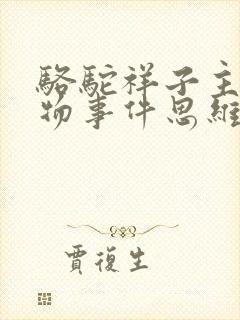 駱駝祥子主
物事件思維
賈復生